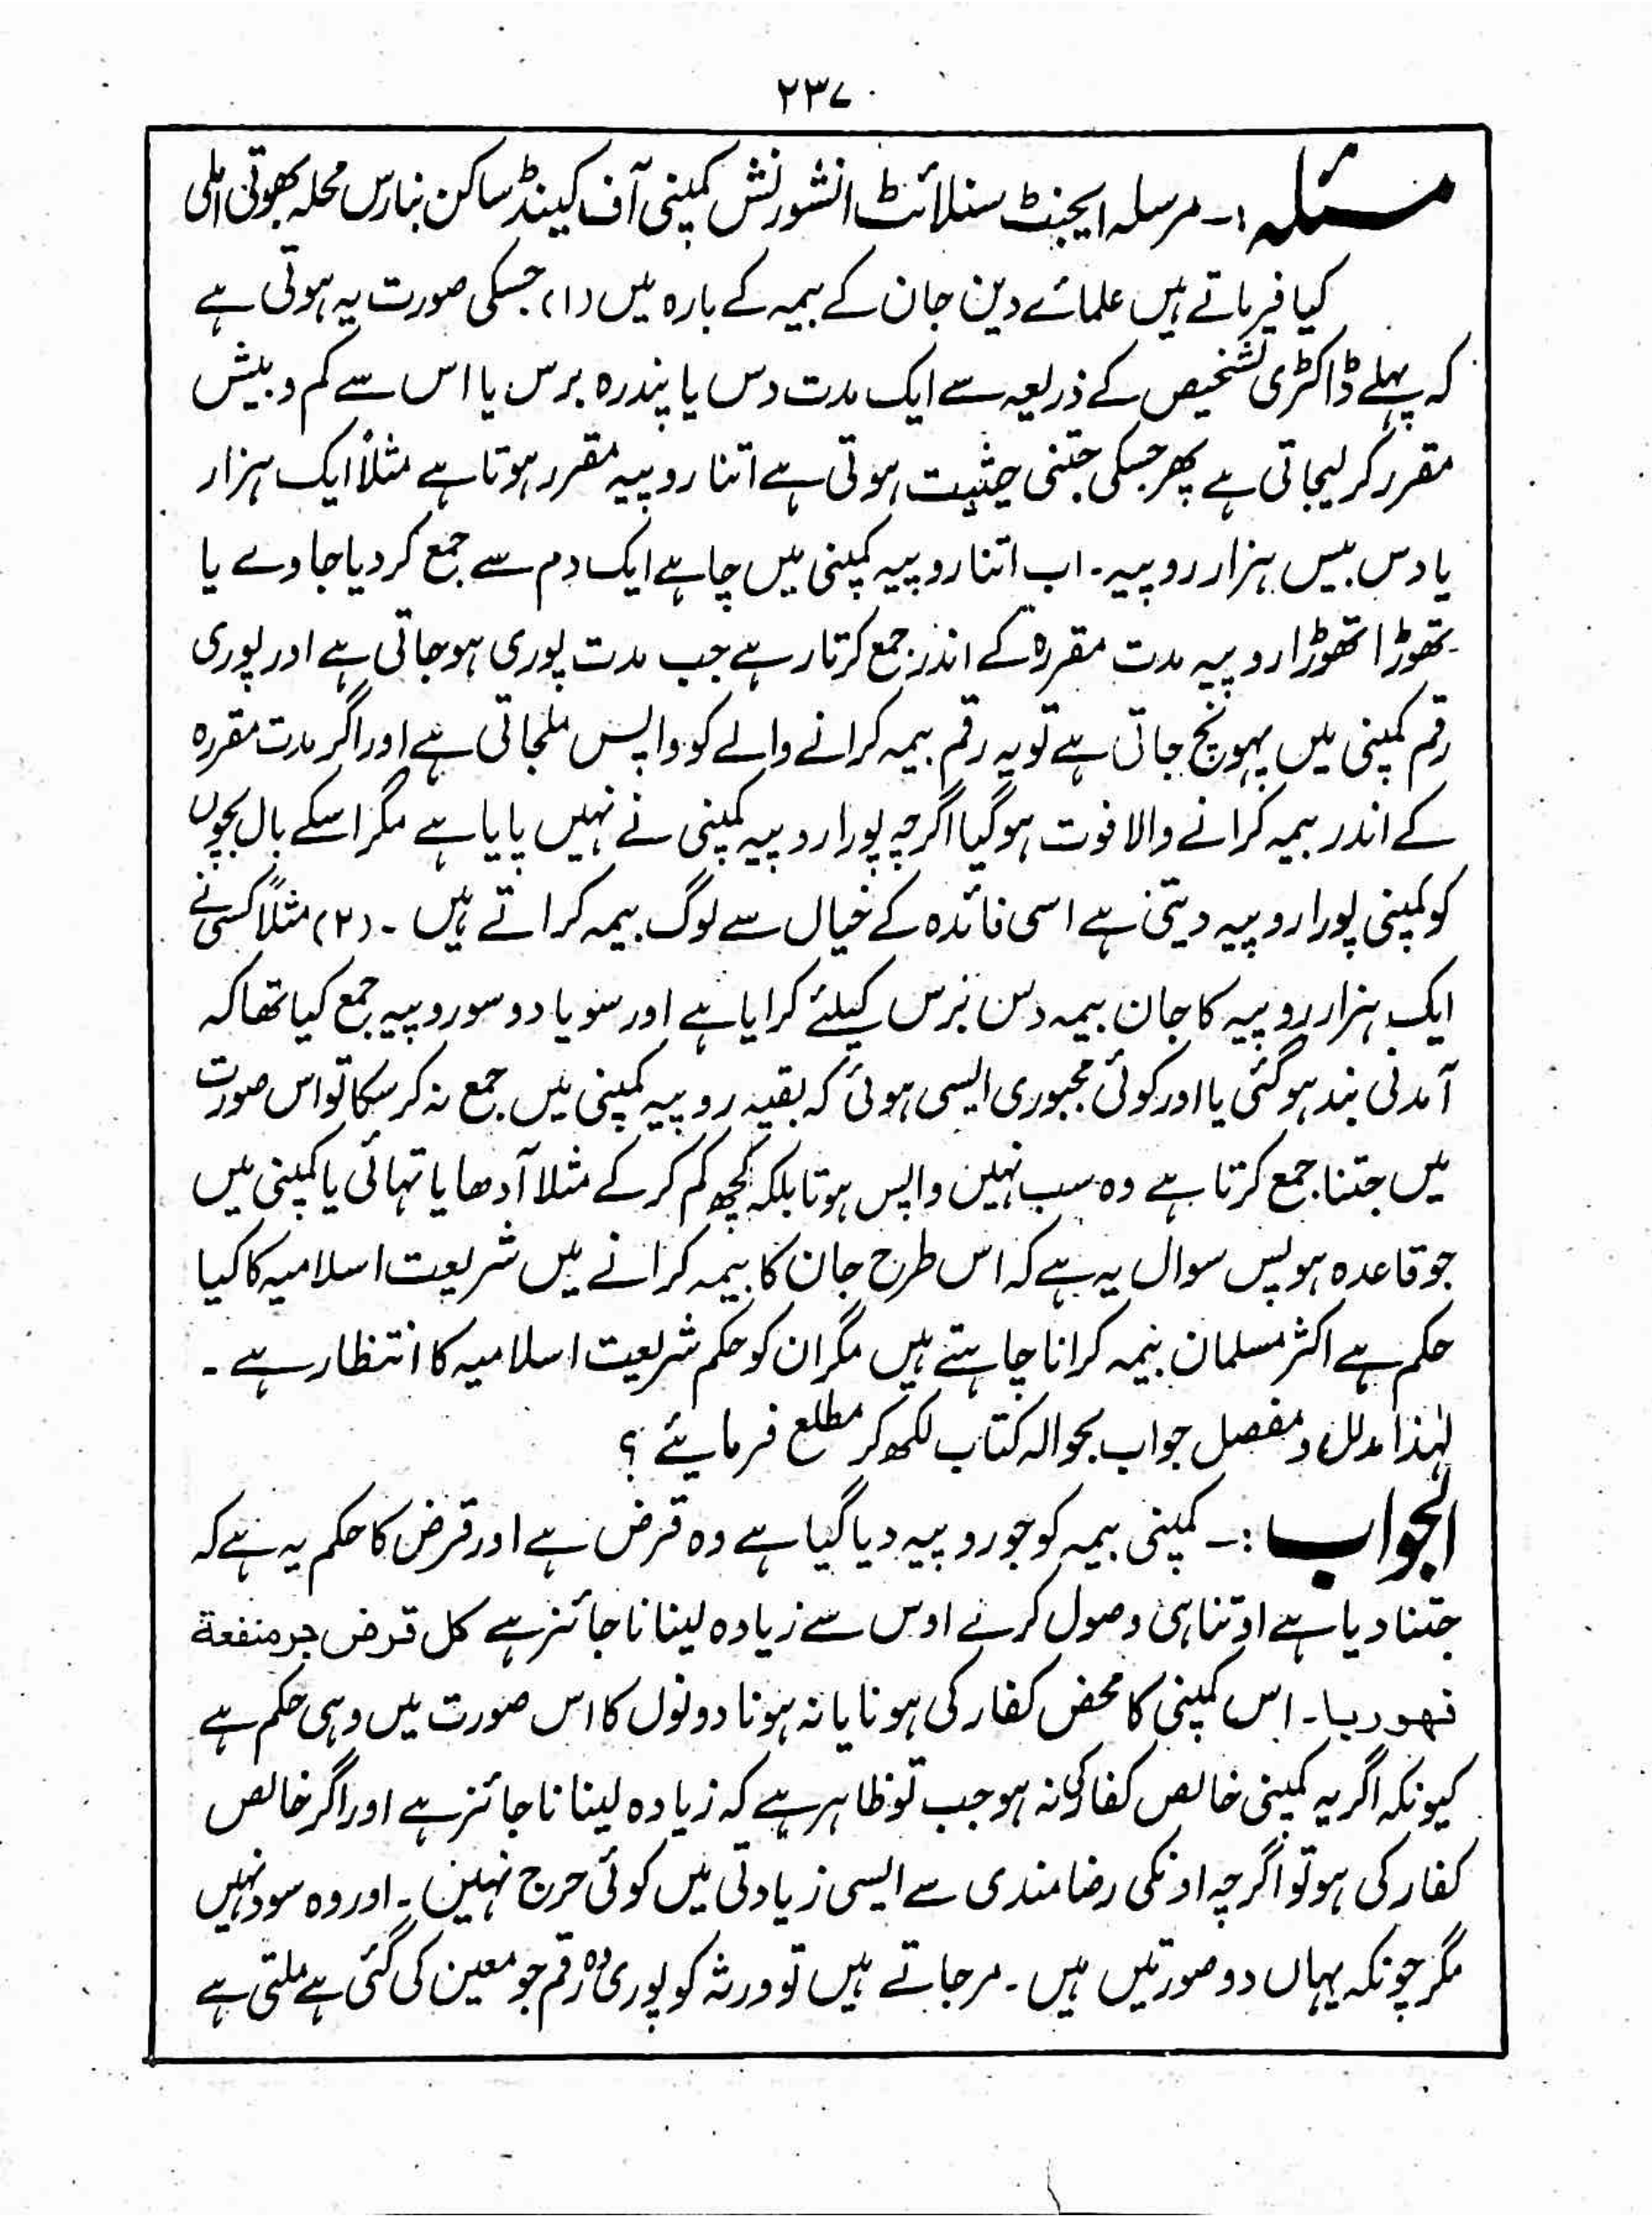 ۲۳۷
مسئلہ:۔ مرسلہ ایجنٹ سنلائٹ انشورنش کمپنی آف کینڈ ساکن بنارس محلہ بھوتی املی
کیا فرماتے ہیں علمائے دین جان کے بیمہ کے بارہ میں (۱) جسکی صورت یہ ہوتی ہے
کہ پہلے ڈاکٹری تشخیص کے ذریعہ سے ایک مدت دس یا پندرہ برس یا اس سے کم و بیش
مقرر کر لیجاتی ہے پھر جسکی جتنی حیثیت ہوتی ہے اتنا روپیہ مقرر ہوتا ہے مثلاً ایک ہزار
یا دس بیس ہزار روپیہ۔ اب اتنا روپیہ کمپنی میں چاہے ایک دم سے جمع کر دیا جاوے یا
تھوڑا تھوڑا روپیہ مدت مقررہ کے اندر جمع کرتا رہے جب مدت پوری ہو جاتی ہے اور پوری
رقم کمپنی میں پہونچ جاتی ہے تو یہ رقم بیمہ کرانے والے کو واپس ملجاتی ہے اور اگر مدت مقررہ
کے اندر بیمہ کرانے والا فوت ہو گیا اگرچہ پورا روپیہ کمپنی نے نہیں پایا ہے مگر اسکے بال بچوں
کو کمپنی پورا روپیہ دیتی ہے اسی فائدہ کے خیال سے لوگ بیمہ کراتے ہیں ۔ (۲) مثلاً کسی نے
ایک ہزار روپیہ کا جان بیمہ دس برس کیلئے کرایا ہے اور سو یا دو سو روپیہ جمع کیا تھا کہ
آمدنی بند ہو گئی یا اور کوئی مجبوری ایسی ہوئی کہ بقیہ روپیہ کمپنی میں جمع نہ کر سکا تو اس صورت
میں جتنا جمع کرتا ہے وہ سب نہیں واپس ہوتا بلکہ کچھ کم کر کے مثلا آدھا یا تہائی یا کمپنی میں
جو قاعدہ ہو پس سوال یہ ہے کہ اس طرح جان کا بیمہ کرانے میں شریعت اسلامیہ کا کیا
حکم ہے اکثر مسلمان بیمہ کرانا چاہتے ہیں مگر ان کو حکم شریعت اسلامیہ کا انتظار ہے ۔
لہٰذا مدلل و مفصل جواب بحوالہ کتاب لکھ کر مطلع فرمایئے ؟
الجواب:۔ کمپنی بیمہ کو جو روپیہ دیا گیا ہے وہ قرض ہے اور قرض کا حکم یہ ہے کہ
جتنا دیا ہے اوتنا ہی وصول کرے اوس سے زیادہ لینا ناجائز ہے کل قرض جر منفعة
فهو ربا۔ اس کمپنی کا محض کفار کی ہونا یا نہ ہونا دونوں کا اس صورت میں وہی حکم ہے
کیونکہ اگر یہ کمپنی خالص کفار کی نہ ہو جب تو ظاہر ہے کہ زیادہ لینا ناجائز ہے اور اگر خالص
کفار کی ہو تو اگرچہ اونکی رضامندی سے ایسی زیادتی میں کوئی حرج نہیں ۔ اور وہ سود نہیں
مگر چونکہ یہاں دو صورتیں ہیں ۔ مر جاتے ہیں تو ورثہ کو پوری وہ رقم جو معین کی گئی ہے ملتی ہے